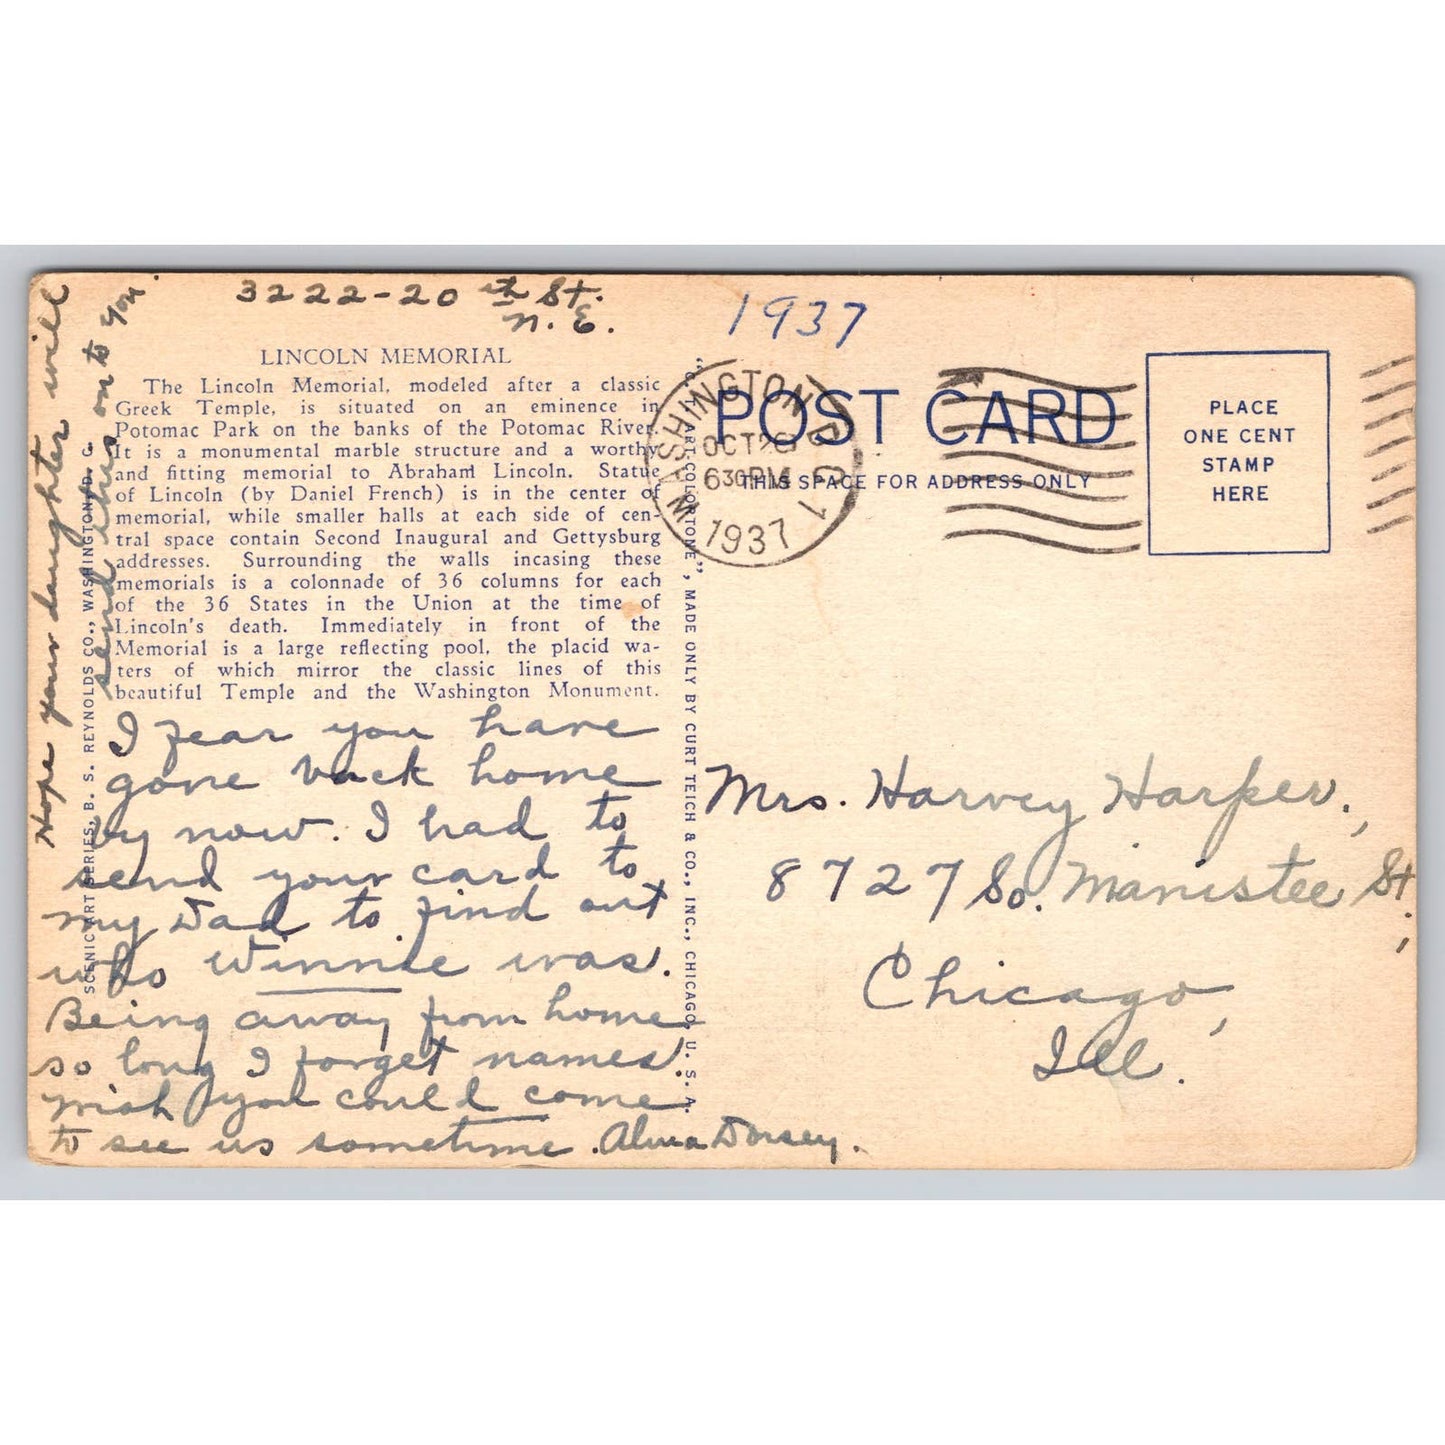 3222-20th St.
N. E.
LINCOLN MEMORIAL
The Lincoln Memorial, modeled after a classic
Greek Temple, is situated on an eminence in
Potomac Park on the banks of the Potomac River.
It is a monumental marble structure and a worthy
and fitting memorial to Abraham Lincoln. Statue
of Lincoln (by Daniel French) is in the center of
memorial, while smaller halls at each side of cen-
tral space contain Second Inaugural and Gettysburg
addresses. Surrounding the walls incasing these
memorials is a colonnade of 36 columns for each
of the 36 States in the Union at the time of
Lincoln's death. Immediately in front of the
Memorial is a large reflecting pool, the placid wa-
ters of which mirror the classic lines of this
beautiful Temple and the Washington Monument.
I fear you have
gone back home
by now. I had to
send your card to
my Dad to find out
who Winnie was.
Being away from home
so long I forget names.
Wish you could come
to see us sometime. Alma Dorsey.
Hope your daughter will
send this on to you.
SCENIC ART SERIES, B. S. REYNOLDS CO., WASHINGTON, D. C.
ART-COLORTONE", MADE ONLY BY CURT TEICH & CO., INC., CHICAGO, U. S. A.
1937
WASHINGTON, D. C.
OCT 26
630 PM
1937
1
POST CARD
THIS SPACE FOR ADDRESS ONLY
PLACE
ONE CENT
STAMP
HERE
Mrs. Harvey Harper.,
8727 So. Manistee St.,
Chicago,
Ill.